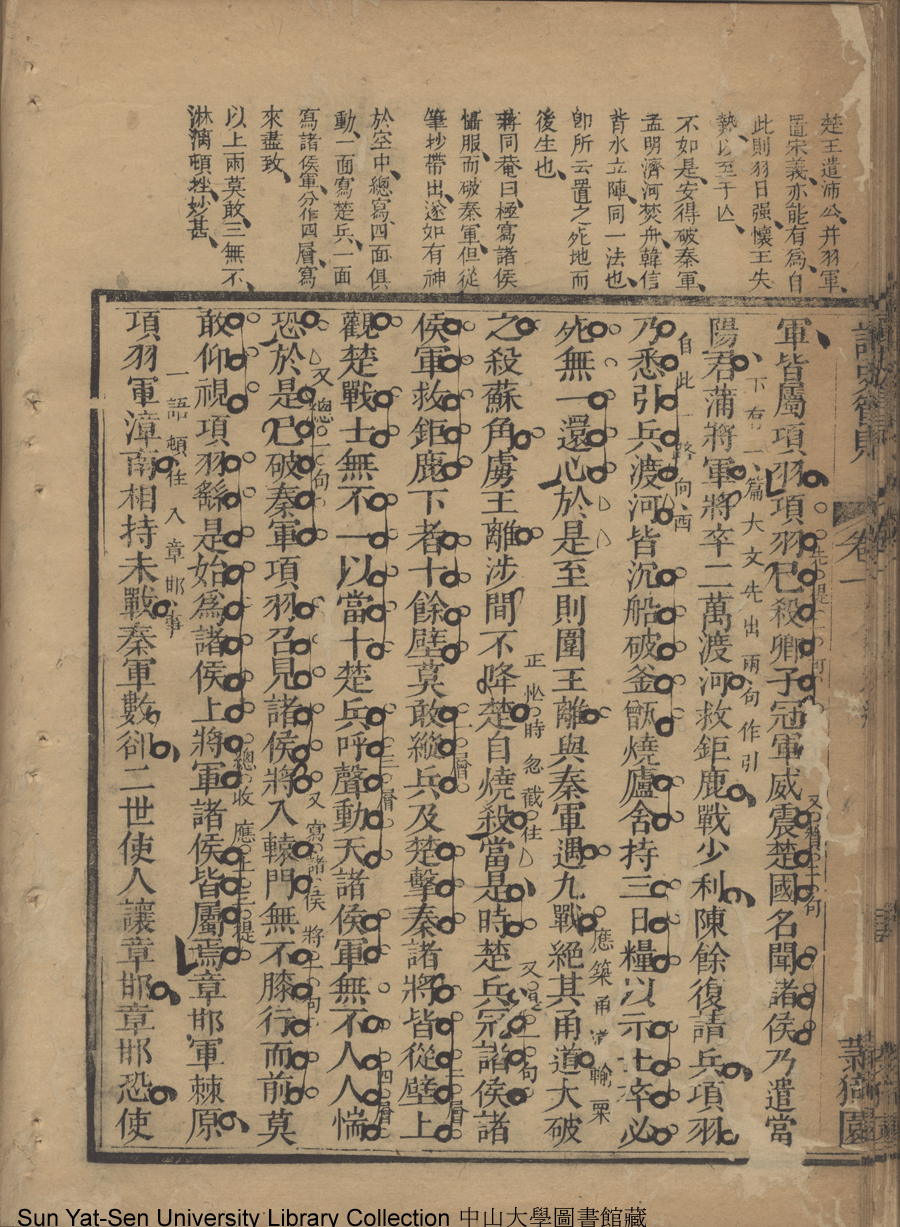 楚王遣沛公、并羽軍、
置宋義、亦能有爲、自
此則羽日强、懷王失
勢、以至于亡、
不如是、安得破秦軍、
孟明濟河焚舟、韓信
背水立陣、同一法也、
卽所云置之死地而
後生也、
蔣同菴曰、極寫諸侯
慴服、而破秦軍、但從
筆抄帶出、遂如有神
於空中、總寫四面俱
動、一面寫楚兵、一面
寫諸侯軍、分作四層、寫
來盡致、
以上兩莫敢、三無不、
淋漓頓挫、妙甚、
卷一
軍皆屬項羽項羽已殺卿子冠軍威震楚國名聞諸侯乃遣當
下有一篇大文先出兩句作引
陽君蒲將軍將卒二萬渡河救鉅鹿戰少利陳餘復請兵項羽
自此一路向西
乃悉引兵渡河皆沉船破釜甑燒廬舍持三日糧以示士卒必
應築甬道輸粟
死無一還心於是至則圍王離與秦軍遇九戰絕其甬道大破
正忙時忽截住
之殺蘇角虜王離涉間不降楚自燒殺當是時楚兵冠諸侯諸
一層
二層
侯軍救鉅鹿下者十餘壁莫敢縱兵及楚擊秦諸將皆從壁上
三層
四層
觀楚戰士無不一以當十楚兵呼聲動天諸侯軍無不人人惴
又總一句
又寫諸侯將一句
恐於是已破秦軍項羽召見諸侯將入轅門無不膝行而前莫
總收
敢仰視項羽繇是始爲諸侯上將軍諸侯皆屬焉章邯軍棘原
一語頓住
入章邯事
項羽軍漳南相持未戰秦軍數卻二世使人讓章邯章邯恐使
Sun Yat-Sen University Library Collection 中山大學圖書館藏